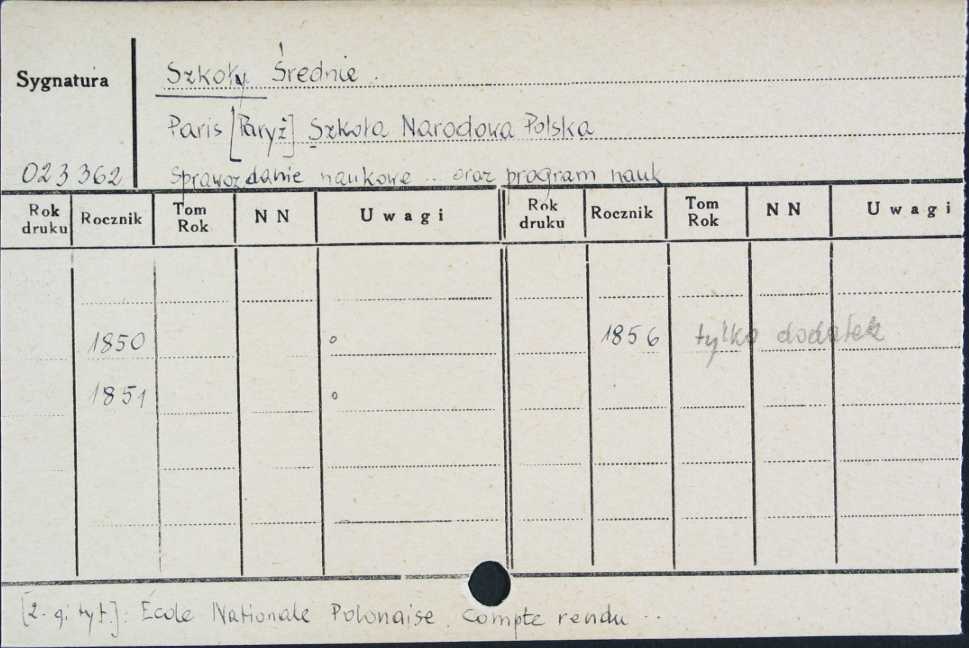 Sygnatura
Szkoły Średnie.
Paris [Paryż] Szkoła Narodowa Polska
023362
Sprawozdanie naukowe .. oraz program nauk
Rok druku Rocznik Tom Rok NN Uwagi Rok druku Rocznik Tom Rok NN Uwagi
1850 1856 tylko dodatek
1851
[2-gi tyt.]: École Nationale Polonaise. Compte rendu ..